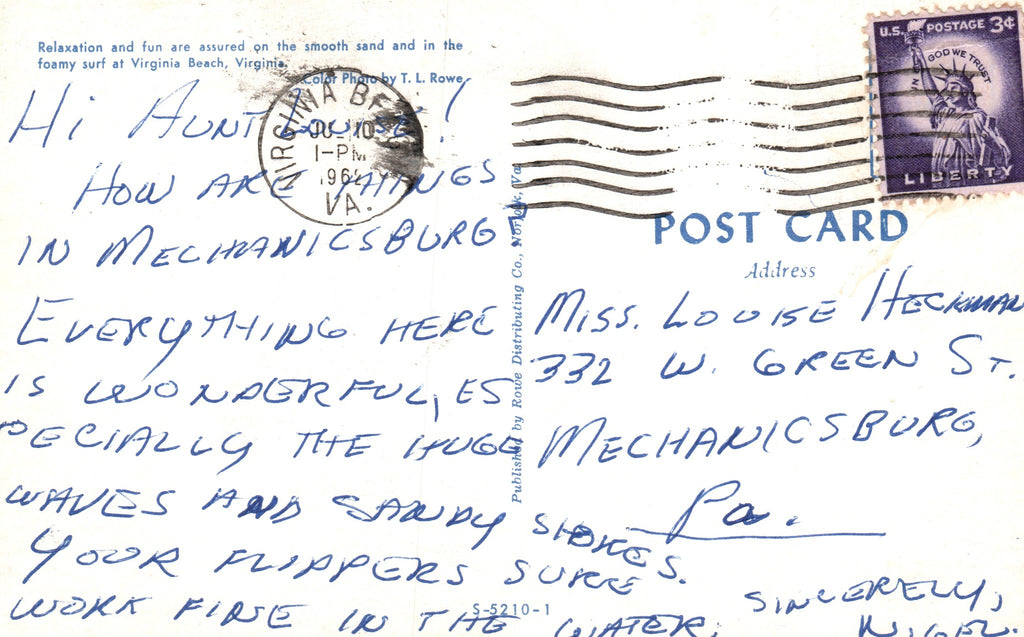 Relaxation and fun are assured on the smooth sand and in the
foamy surf at Virginia Beach, Virginia.
Color Photo by T. L. Rowe
HI AUNT LOUISE!
HOW ARE THINGS
IN MECHANICSBURG
EVERYTHING HERE
IS WONDERFUL, ES
PECIALLY THE HUGE
WAVES AND SANDY SHORES.
YOUR FLIPPERS SURE
WORK FINE IN THE WATER.
SINCERELY,
VIRGINIA BEACH
JUL 10
1-PM
196
VA.
Published by Rowe Distributing Co., Norfolk, Va.
S-5210-1
U.S. POSTAGE 3¢
IN GOD WE TRUST
LIBERTY
POST CARD
Address
MISS. LOUISE HECKMAN
332 W. GREEN ST.
MECHANICSBURG,
Pa.